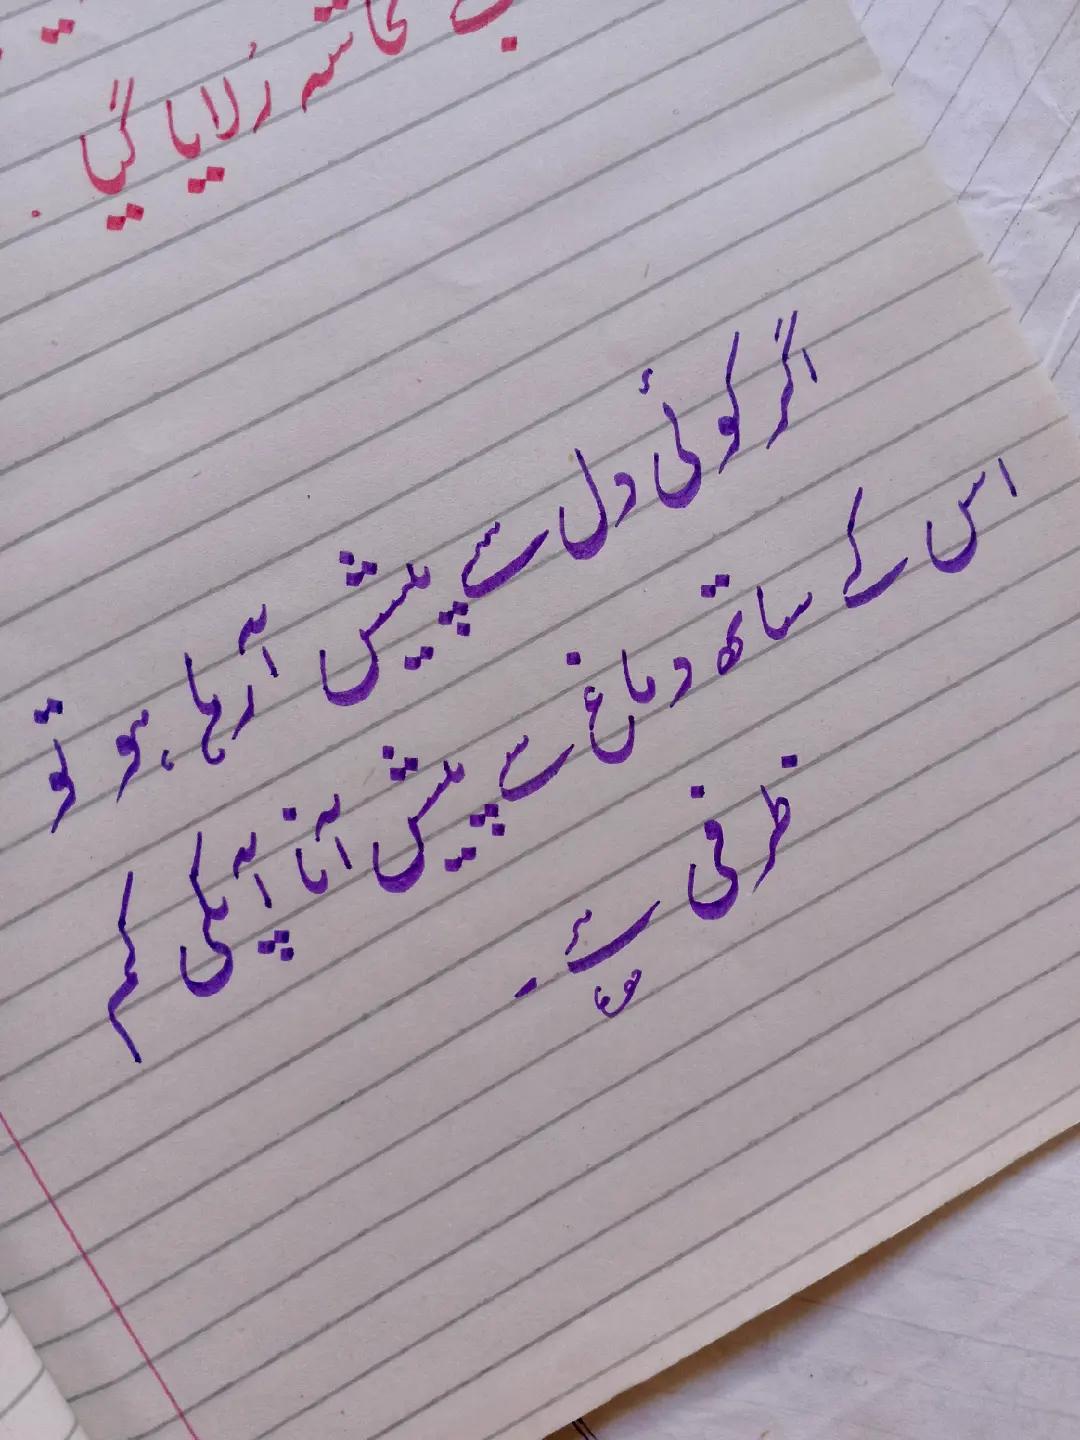 بے تحاشہ رُلایا گیا
اگر کوئی دل سے پیش آرہا ہو تو
اس کے ساتھ دماغ سے پیش آنا آپکی کم
ظرفی ہے۔